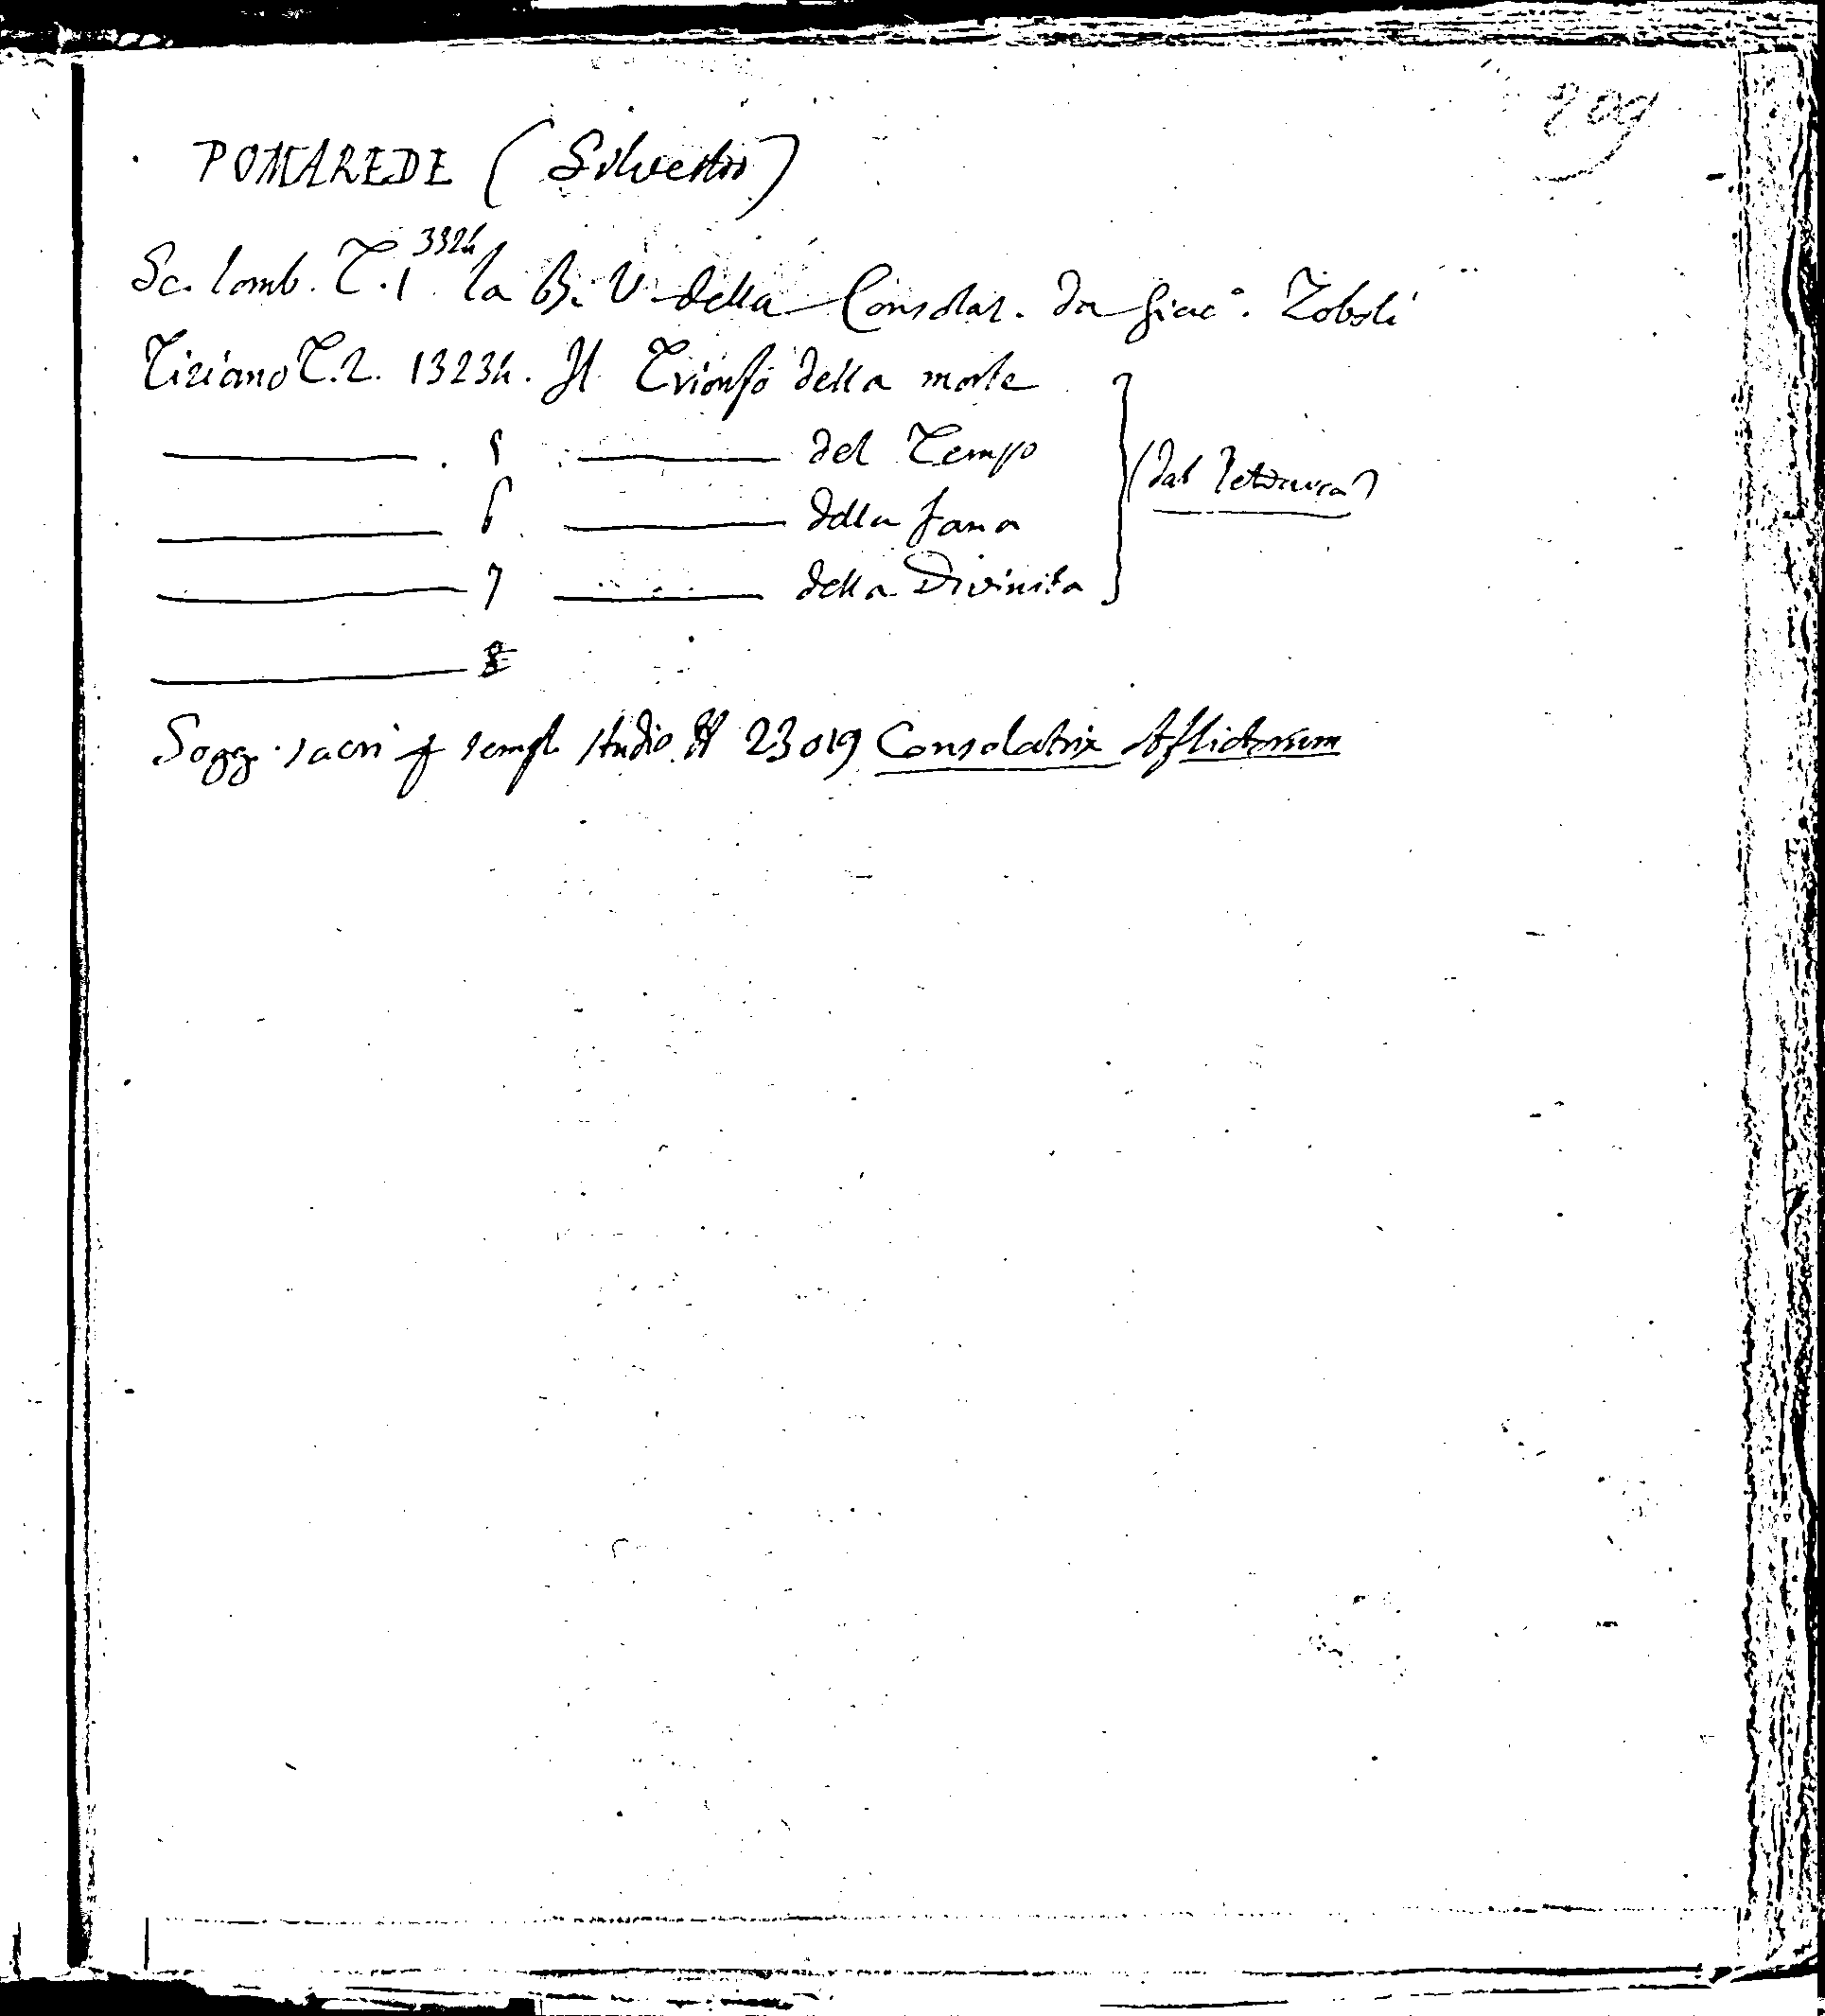 209
POMAREDE (Silvestro)
Sc. lomb. T. 1 3324 la B. V. della Consolaz. da Giac°. Zoboli
Tiziano T. 2. 13234. Il Trionfo della morte
——— . 5 ——— del Tempo
——— 6 ——— della fama (dal Petrarca)
——— 7 ——— della Divinita
——— 8
Sogg. sacri studio 23019 Consolatrix Aflictorum